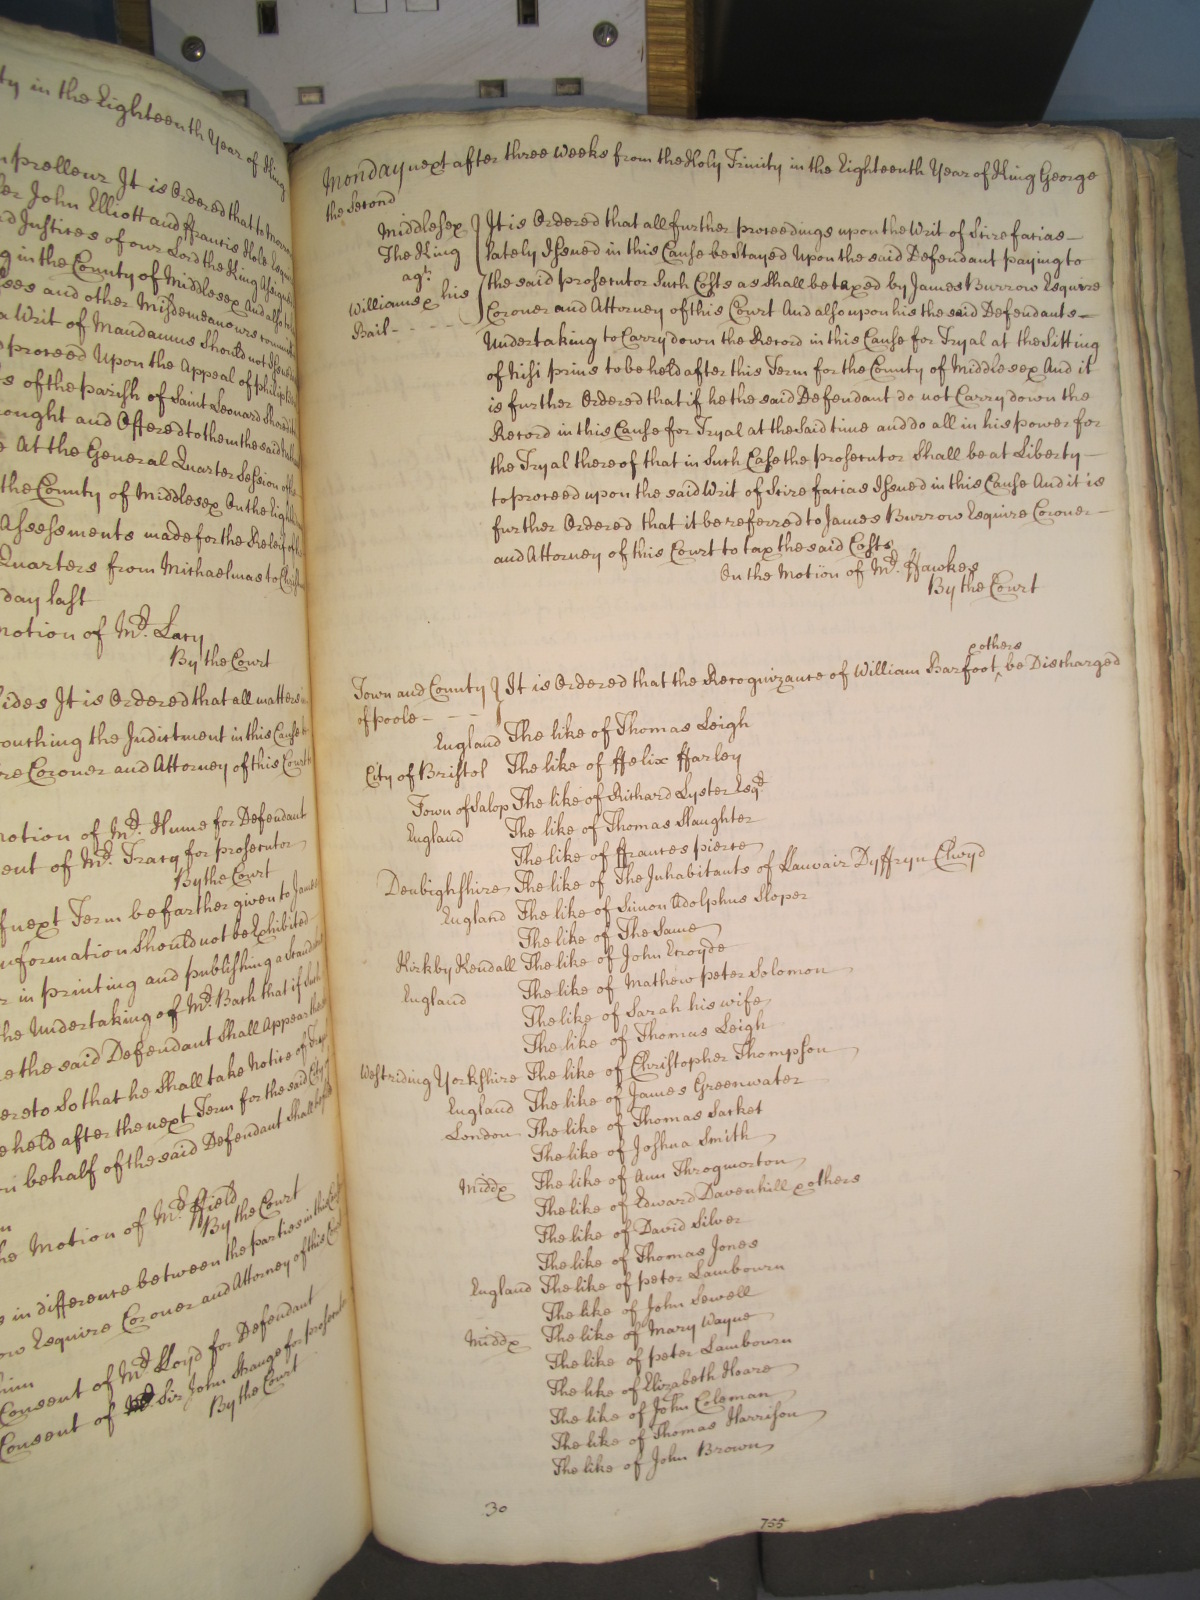 ty in the Eighteenth Year of King
n prelleur It is Ordered that to morrow
er John Elliott and ffrancis Hole Esqui
rd Justices of our Lord the King Assign
g in the County of Middlesex And also
ses and other Misdemeanours committed
a Writ of Mandamus Should not Issue
d proceed Upon the Appeal of philip
s of the parish of Saint Leonard Shoreditch
ought and Offered to them the said
e At the General Quarter Session of the
the County of Middlesex On the Eight
Assessments made for the Releif of
Quarters from Michaelmas to Christ
day last
notion of Mr. Lacy
By the Court
ides It is Ordered that all matters in
touching the Indictment in this Cause
re Coroner and Attorney of this Court
notion of Mr. Hume for Defendant
ent of Mr. Tracy for prosecutor
By the Court
f next Term be farther given to James
nformation Should not be Exhibited
r in printing and publishing a Scandal
he Undertaking of Mr. Bath that if Such
e the said Defendant Shall Appear
ereto So that he Shall take Notice of Tryal
e held after the next Term for the said City
n behalf of the said Defendant Shall
he Motion of Mr. ffield
By the Court
s in difference between the parties in this Cause
ow Esquire Coroner and Attorney of this Court
him
Consent of Mr. Lloyd for Defendant
Consent of Sir John Strange for prosecutor
By the Court
Monday next after three Weeks from the Holy Trinity in the Eighteenth Year of King George
the Second
Middlesex } It is Ordered that all further proceedings upon the Writ of Scire facias
The King lately Issued in this Cause be Stayed Upon the said Defendant paying to
agt. the said prosecutor Such Costs as Shall be taxed by James Burrow Esquire
Williams & his Coroner and Attorney of this Court And also upon his the said Defendants
Bail Undertaking to Carry down the Record in this Cause for Tryal at the Sitting
of Nisi prius to be held after this Term for the County of Middlesex And it
is further Ordered that if he the said Defendant do not Carry down the
Record in this Cause for Tryal at the Said time and do all in his power for
the Tryal thereof that in Such Case the prosecutor Shall be at Liberty
to proceed upon the said Writ of Scire facias Issued in this Cause And it is
further Ordered that it be referred to James Burrow Esquire Coroner
and Attorney of this Court to tax the said Costs
On the Motion of Mr. Hawkes
By the Court
& others
Town and County } It is Ordered that the Recognizance of William Barfoot ‸ be Discharged
of poole
England The like of Thomas Leigh
City of Bristol The like of ffelix ffarley
Town of Salop The like of Richard Lyster Esqr
England The like of Thomas Slaughter
The like of ffrances pierce
Denbighshire The like of The Inhabitants of Llanvair Dyffryn Clwyd
England The like of Simon Adolphus Sloper
The like of The Same
Kirkby Kendall The like of John Ecroyde
England The like of Mathew peter Solomon
The like of Sarah his wife
The like of Thomas Leigh
Westriding Yorkshire The like of Christopher Thompson
England The like of James Greenwater
London The like of Thomas Sacket
The like of Joshua Smith
Middx The like of Ann Throgmorton
The like of Edward Davenhill & others
The like of David Silver
The like of Thomas Jones
England The like of peter Lambourn
The like of John Sewell
Middx The like of Mary Wayne
The like of peter Lambourn
The like of Elizabeth Hoare
The like of John Coleman
The like of Thomas Harrison
The like of John Brown
30
755